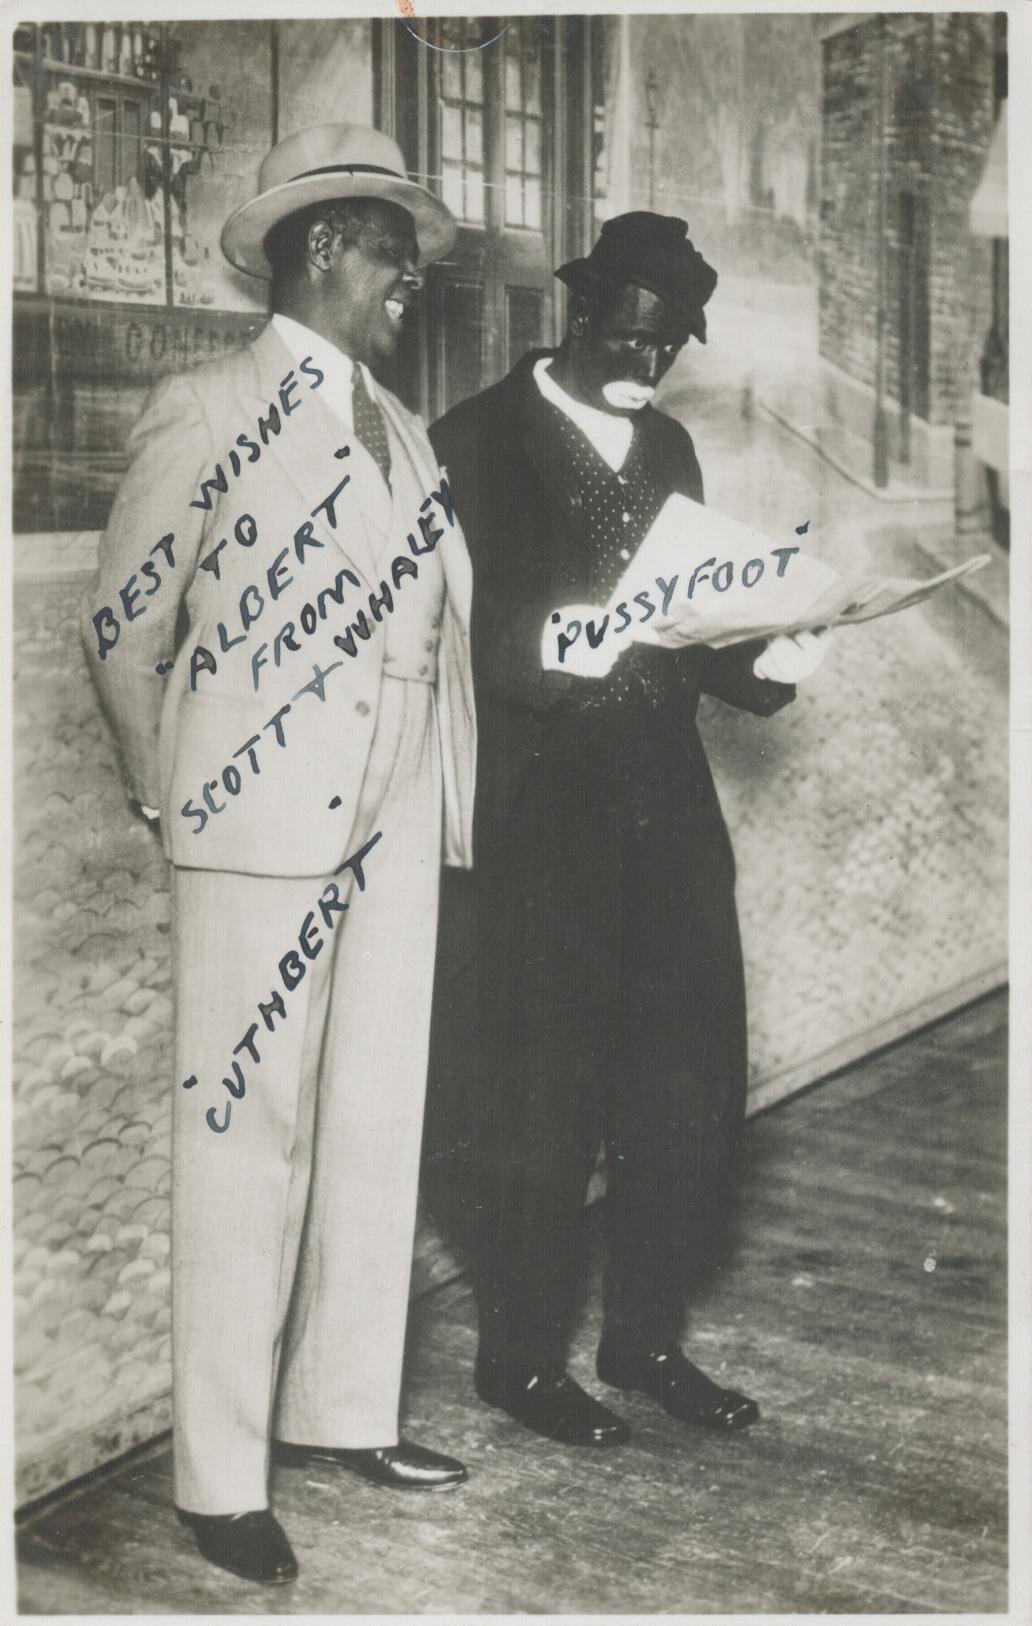 CONFE
BEST WISHES
TO
"ALBERT"
FROM
SCOTT & WHALEY
"PUSSYFOOT"
"CUTHBERT"